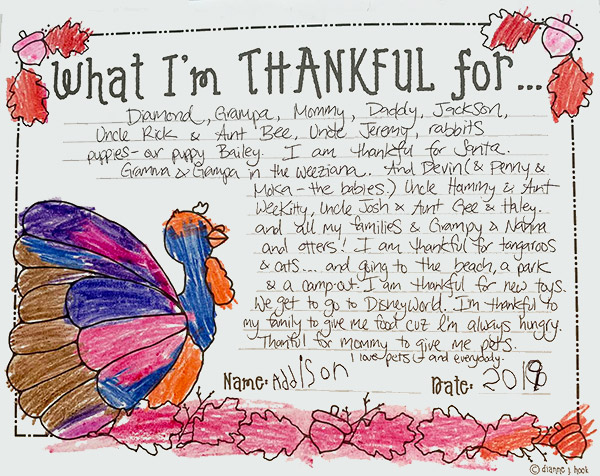 What I'm THANKFUL for...
Diamond, Grampa, Mommy, Daddy, Jackson,
Uncle Rick & Aunt Bee, Uncle Jeremy, rabbits
puppies - our puppy Bailey. I am thankful for Santa.
Gramma & Grampa in the weeziana. And Devin (& Penny &
Moka - the babies.) Uncle Hammy & Aunt
WeeKitty, Uncle Josh & Aunt Gee & Haley.
and all my families & Grampy & Nanna
and otters! I am thankful for tangaroos
& cats... and going to the beach, a park
& a camp-out. I am thankful for new toys.
We get to go to DisneyWorld. I'm thankful to
my family to give me food cuz I'm always hungry.
Thankful for mommy to give me pets.
I love pets and everybody.
Name: Addison Date: 2019
© dianne j. hook